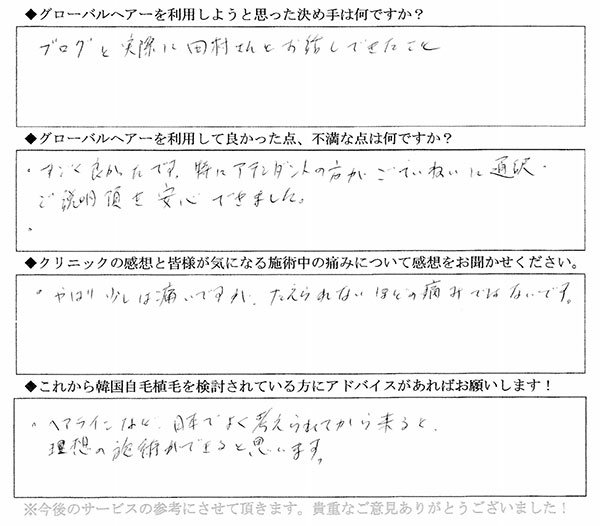 ◆グローバルヘアーを利用しようと思った決め手は何ですか?
ブログと実際に田村さんとお話しできたこと
◆グローバルヘアーを利用して良かった点、不満な点は何ですか?
・すごく良かったです。特にアテンダントの方がごていねいに通訳・
ご説明頂き安心できました。
・
◆クリニックの感想と皆様が気になる施術中の痛みについて感想をお聞かせください。
・やはり少しは痛いですが、たえられないほどの痛みではないです。
◆これから韓国自毛植毛を検討されている方にアドバイスがあればお願いします!
・ヘアラインなど、日本でよく考えられてから来ると、
理想の施術ができると思います。
※今後のサービスの参考にさせて頂きます。貴重なご意見ありがとうございました!